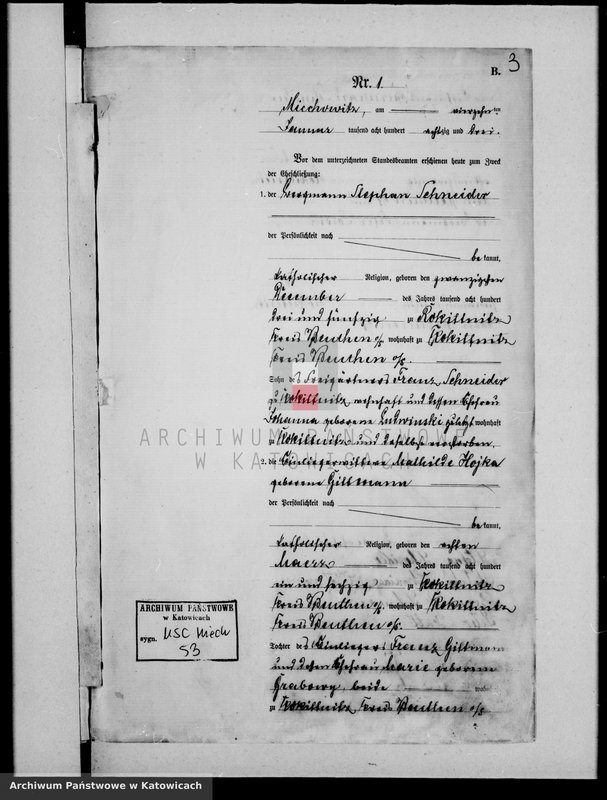 3
B.
Nr. 1
Miechowitz, am vierzehnten
Januar tausend acht hundert achtzig und drei.
Vor dem unterzeichneten Standesbeamten erschienen heute zum Zweck
der Eheschließung:
1. der Bergmann Stephan Schneider
der Persönlichkeit nach
be kannt,
katholischer Religion, geboren den zwanzigsten
Dezember des Jahres tausend acht hundert
drei und fünfzig zu Rokittnitz
Kreis Beuthen o/s wohnhaft zu Rokittnitz
Kreis Beuthen o/s.
Sohn des Freigärtners Franz Schneider
zu Rokittnitz wohnhaft und dessen Ehefrau
Johanna geborene Ludwinski zuletzt wohnhaft
zu Rokittnitz und daselbst verstorben.
2. die Einliegerwittwe Mathilde Hojka
geborene Gittmann
der Persönlichkeit nach
be kannt,
katholischer Religion, geboren den achten
Maerz des Jahres tausend acht hundert
ein und sechzig zu Rokittnitz
Kreis Beuthen o/s wohnhaft zu Rokittnitz
Kreis Beuthen o/s.
Tochter des Einliegers Franz Gittmann
und dessen Ehefrau Marie geborene
Grabowy, beide wohnhaft
zu Rokittnitz, Kreis Beuthen o/s
ARCHIWUM PAŃSTWOWE
W KATOWICACH
ARCHIWUM PAŃSTWOWE
w Katowicach
sygn. USC Miech
53
Archiwum Państwowe w Katowicach